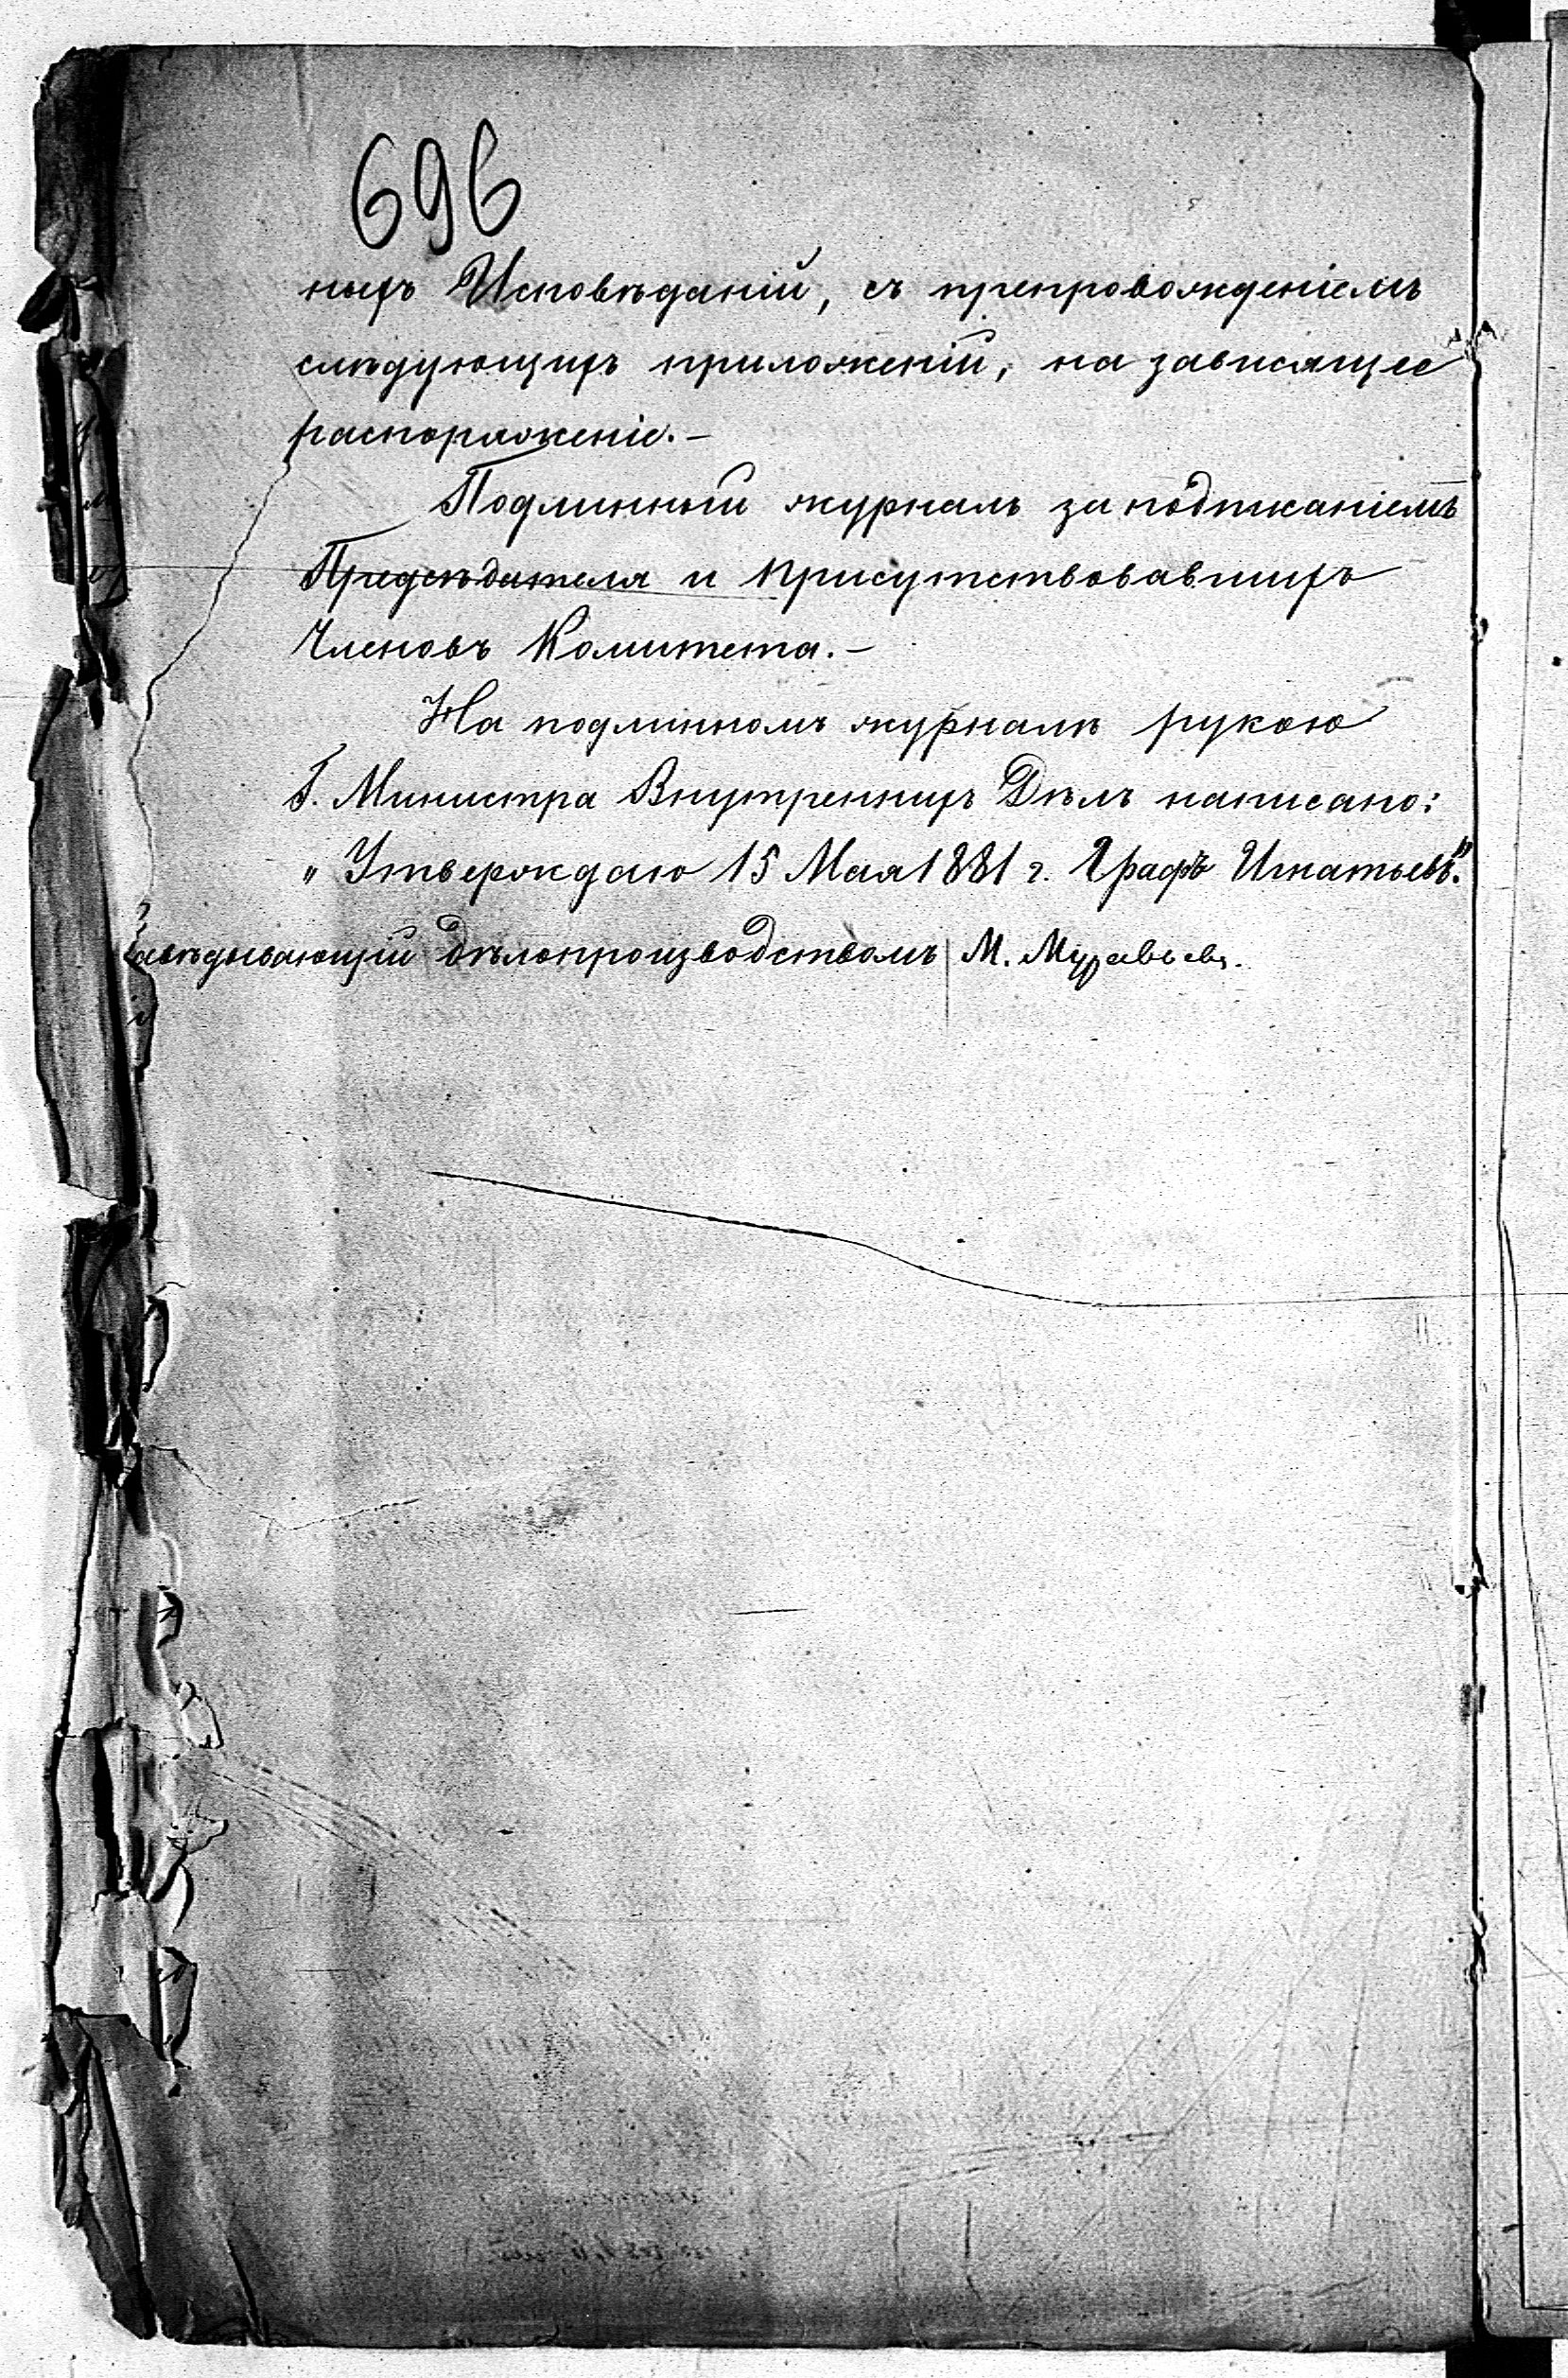 696
ныхъ Исповѣданій, съ препровожденіемъ
слѣдующихъ приложеній, на зависящее
распоряженіе.-
Подлинный журналъ за подписаніемъ
Предсѣдателя и присутствовавшихъ
Членовъ Комитета.-
На подлинномъ журналѣ рукою
Г. Министра Внутреннихъ Дѣлъ написано:
„Утверждаю 15 Мая 1881 г. Графъ Игнатьевъ."
авѣдывающій дѣлопроизводствомъ М. Муравьевъ.